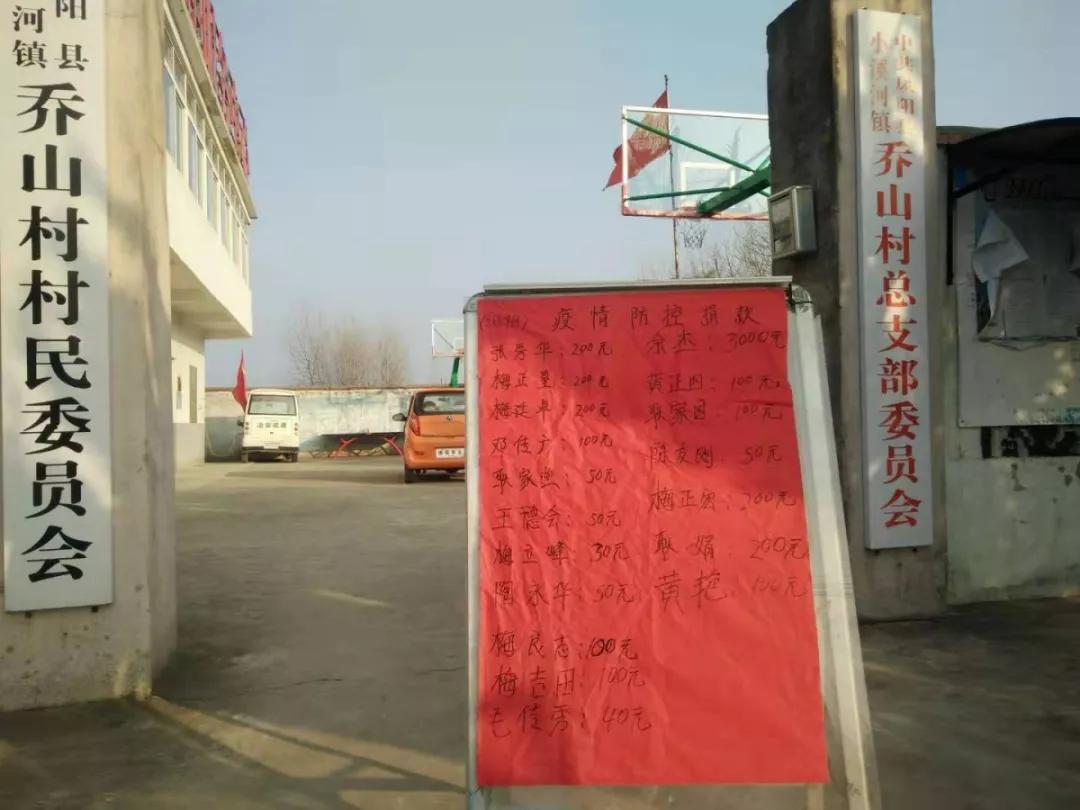 阳县
河镇
乔山村村民委员会
疫情防控捐款
张秀华：200元
梅正星：200元
梅廷卓：200元
邓传广：100元
耿家兴：50元
王德会：50元
梅立峰：30元
陶永华：50元
梅良志：100元
梅吉田：100元
毛佳秀：40元
余杰：3000元
黄正国：100元
耿家国：100元
陈友刚：50元
梅正银：200元
耿娟：200元
黄艳：100元
中共凤阳县
小溪河镇
乔山村总支部委员会